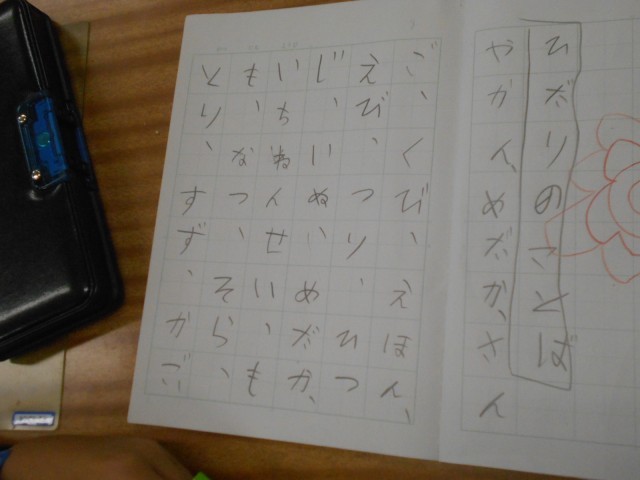 ひだりのさとば
やかん、めだか、さん
ご、くび、えほん、
えび、つり、ひつ
じ、いぬいめだか、
いちねんせい、も
も、なつ、そら、
とり、すず、かご